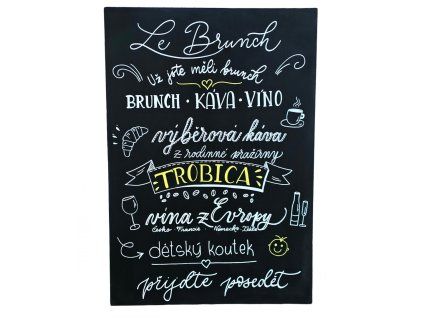 Le Brunch
Už jste měli brunch
BRUNCH · KÁVA · VÍNO
výběrová káva
z rodinné pražírny
TROBICA
vína z Evropy
Česko · Francie · Německo · Itálie
dětský koutek
přijďte posedět